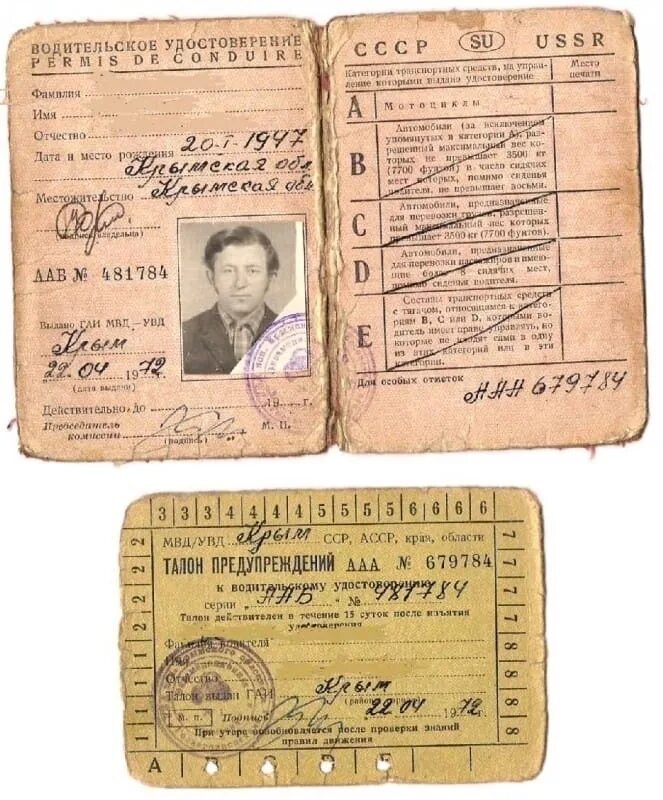 ВОДИТЕЛЬСКОЕ УДОСТОВЕРЕНИЕ
PERMIS DE CONDUIRE
Фамилия
Имя
Отчество
Дата и место рождения 20-I-1947
Крымская обл
Местожительство Крымская обл
(подпись владельца)
ААБ № 481784
Выдано ГАИ МВД—УВД
Крым
22.04 1972 г.
(дата выдачи)
Действительно до 19 г.
Председатель
комиссии
(подпись)
М. П.
СССР SU USSR
Категории транспортных средств, на управ-
ление которыми выдано удостоверение
Место
печати
A Мотоциклы
B Автомобили (за исключением
упомянутых в категории А), раз-
решенный максимальный вес ко-
торых не превышает 3500 кг
(7700 фунтов) и число сидячих
мест которых, помимо сиденья
водителя, не превышает восьми.
C Автомобили, предназначенные
для перевозки грузов, разрешен-
ный максимальный вес которых
превышает 3500 кг (7700 фунтов).
D Автомобили, предназначенные
для перевозки пассажиров и имею-
щие более 8 сидячих мест,
помимо сиденья водителя.
E Составы транспортных средств
с тягачом, относящимся к катего-
риям B, C или D, которыми води-
тель имеет право управлять, но
которые не входят сами в одну
из этих категорий или в эти
категории.
Для особых отметок
ААА 679784
3 3 3 3 4 4 4 4 5 5 5 5 6 6 6 6
МВД/УВД Крым ССР, АССР, края, области
ТАЛОН ПРЕДУПРЕЖДЕНИЙ ААА № 679784
к водительскому удостоверению
серии „ААБ" № 481784
Талон действителен в течение 15 суток после изъятия
удостоверения
Фамилия водителя
Имя
Отчество
Талон выдан ГАИ Крым
М. П. Подпись 22.04 1972 г.
При утере возобновляется после проверки знаний
правил движения
2 2 2 2 1 1 1 1
7 7 7 7 8 8 8 8
A B C D E